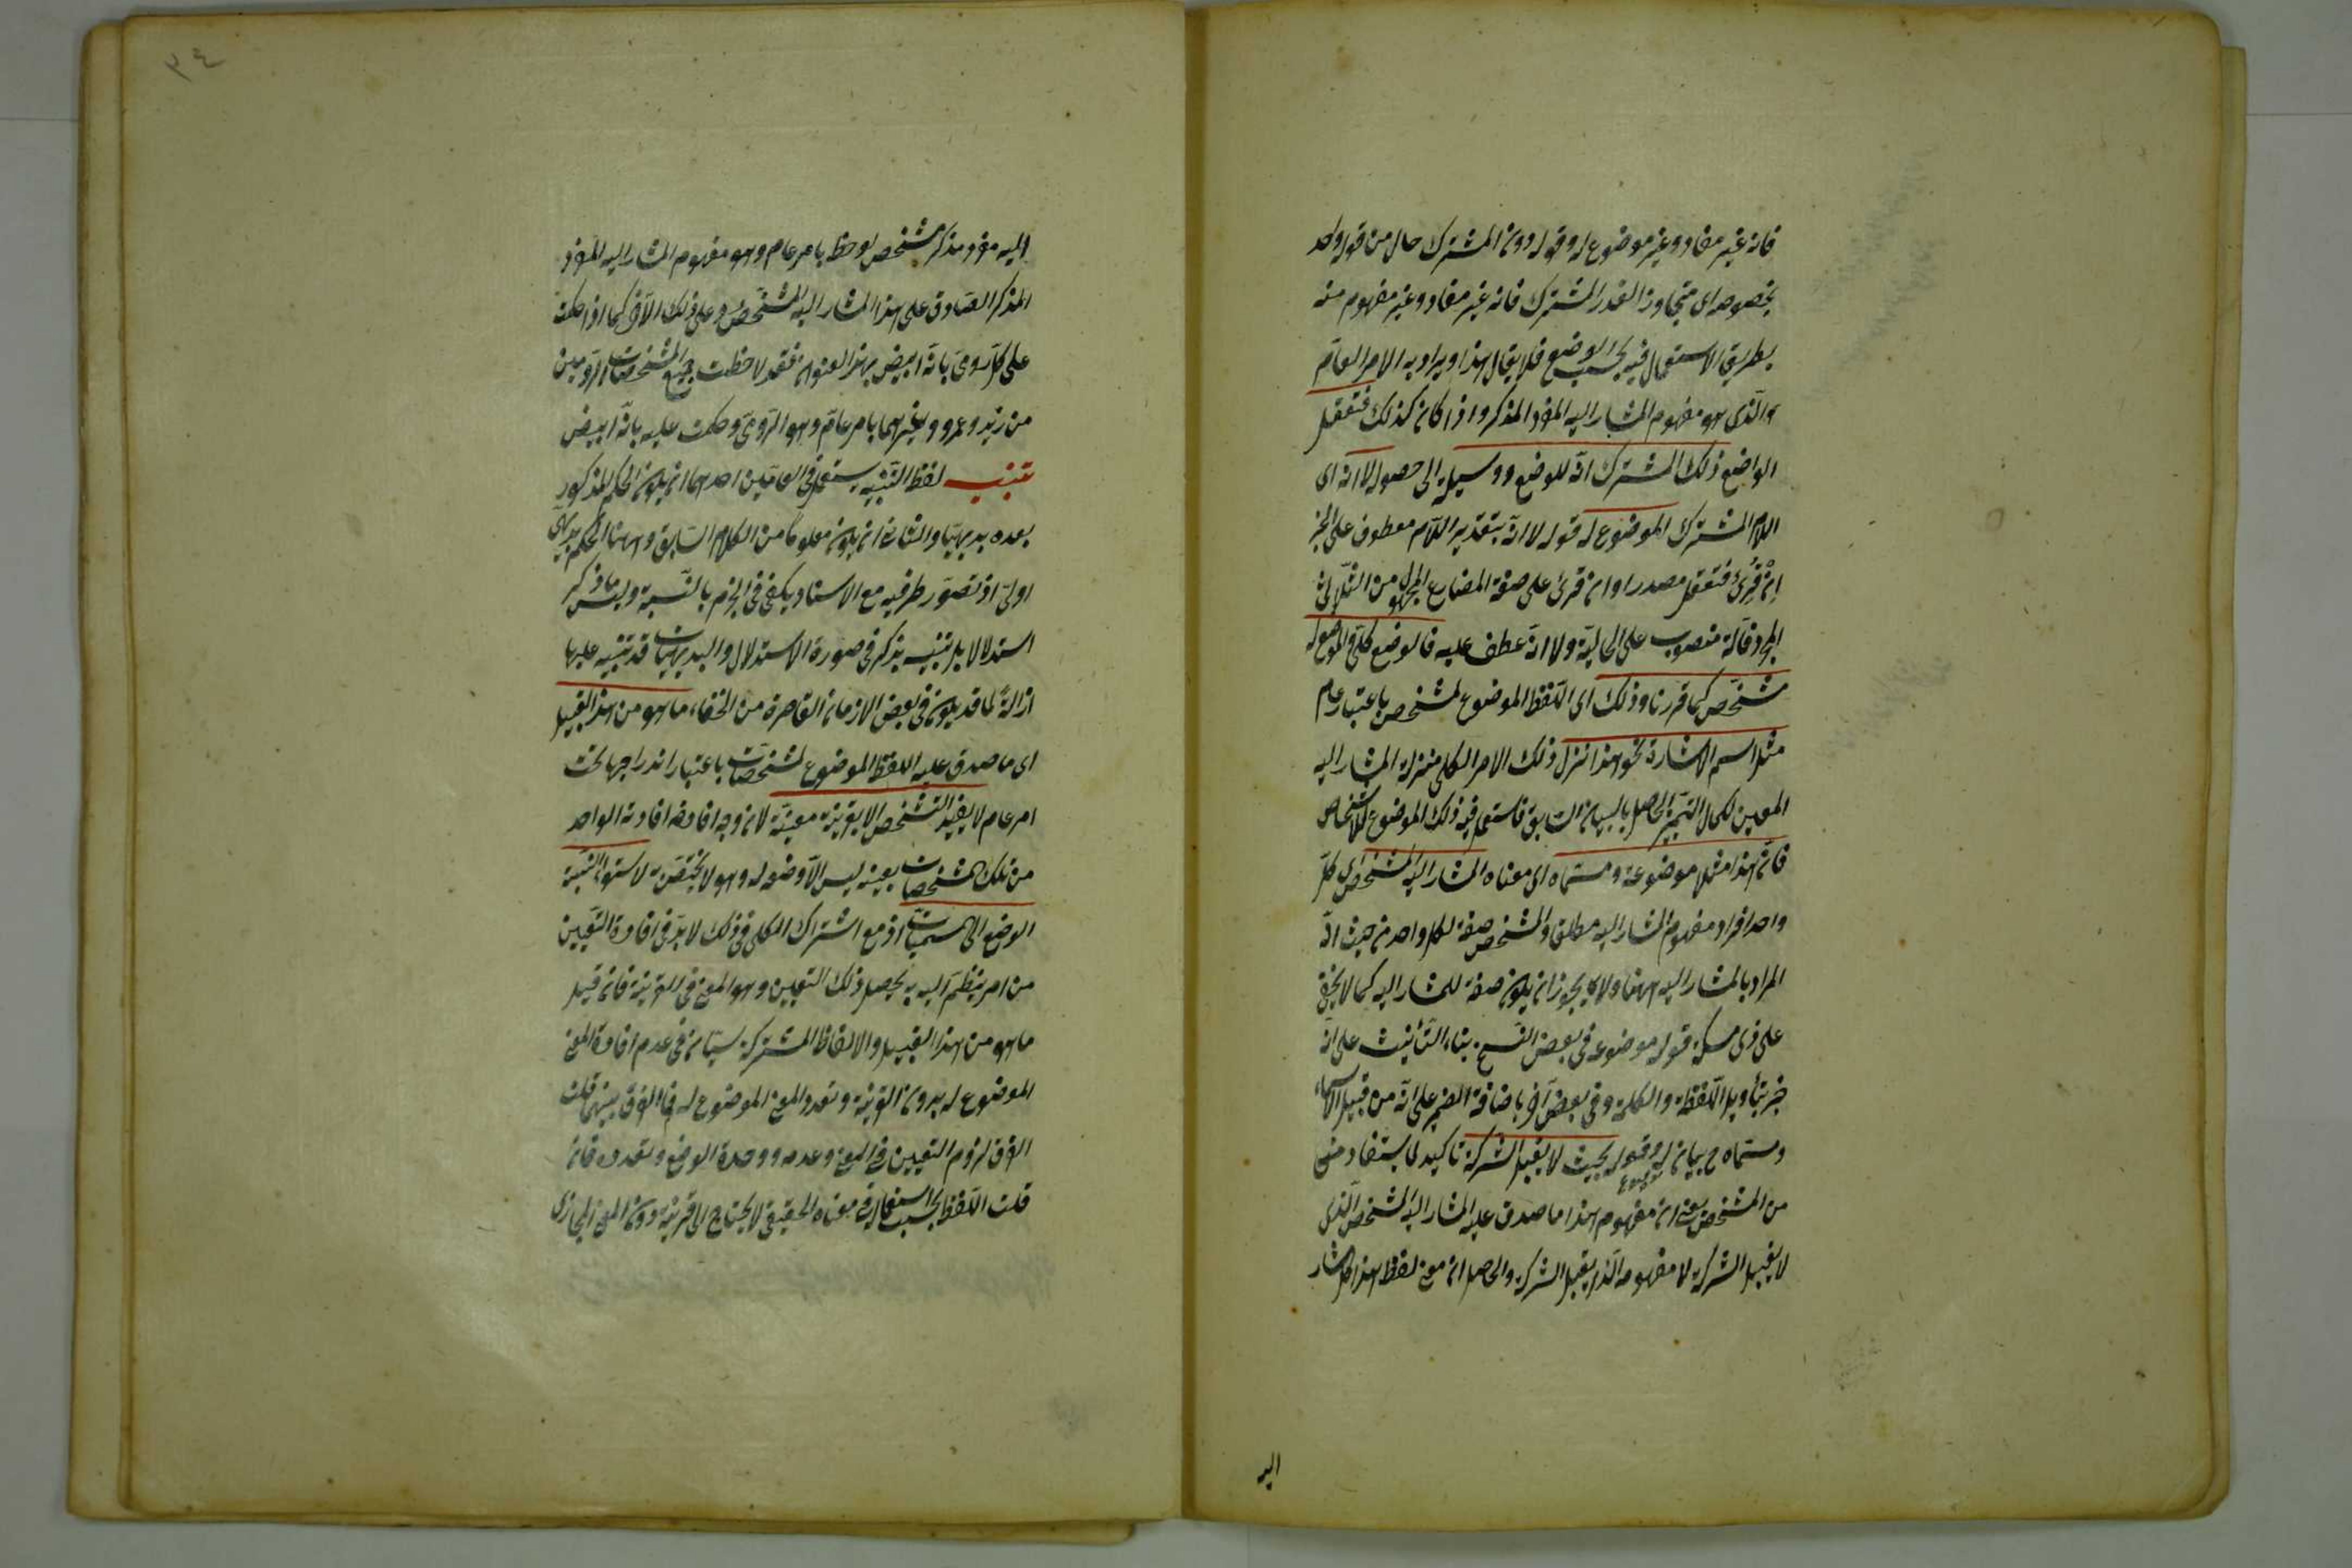 فانه غير مفاد وغير موضوع له وقوله دون المشترك حال من قوله واحد
بخصوصه اى متجاوز القدر المشترك فانه غير مفاد وغير مفهوم منه
بطريق الاستعمال فيه بحسب الوضع فلا يقال هذا ويراد به الامر العام
والذى هو مفهوم المشار اليه المفرد المذكر واذا كان كذلك فتعقل
الواضع ذلك المشترك آلة للوضع ووسيلة الى حصوله لا انه اى
الامر المشترك الموضوع له قوله لا انه بتقدير اللام معطوف على الخبر
ان قرئ فتعقل مصدرا وان قرئ على صيغة المضارع المجهول من الثلاثى
المجرد فآلة منصوب على الحالية ولا انه عطف عليه فالوضع كلى والموضوع له
مشخص كما قررنا وذلك اى اللفظ الموضوع لمشخص باعتبار عام
مثل اسم الاشارة نحو هذا نزل ذلك الامر الكلى منزلة المشار اليه
المعين لكمال التميز الحاصل بالبيان السابق فاستعمل فيه ذلك الموضوع للاشخاص
فان هذا مثلا موضوعه ومسماه اى معناه المشار اليه المشخص اى كل
واحد افراد مفهوم المشار اليه مطلق والمشخص صفة لكل واحد من حيث انه
المراد بالمشار اليه ههنا ولا يجوز ان يكون صفة للمشار اليه كما لا يخفى
على ذى مسكة قوله موضوعه فى بعض النسخ بتاء التأنيث على انه
خبر بتأويل اللفظة والكلمة وفى بعض آخر باضافة الضمير على انه من قبيل الاسماء
ومسماه ح بيان لموضوعه وقوله بحيث لا يقبل الشركة تاكيد لما يستفاد منى
من المشخص يعنى ان مفهوم هذا ما صدق عليه المشار اليه المشخص الذى
لا يقبل الشركة لا مفهومه الذى يقبل الشركة والحاصل ان معنى لفظ هذا كل مشار
اليه
٣٤
اليه مفرد مذكر مشخص لوحظ بامر عام وهو مفهوم المشار اليه المفرد
المذكر الصادق على هذا المشار اليه المشخص وعلى ذلك الآخر كما اذا حكمت
على كل رومى بانه ابيض بهذا العنوان فقد لاحظت جميع المشخصات الروميين
من زيد وعمرو وغيرهما بامر عام وهو الرومى وحكمت عليه بانه ابيض
تنبيه لفظ التنبيه يستعمل فى المقامين احدهما ان يكون الحكم المذكور
بعده بديهيا والثانى ان يكون معلوما من الكلام السابق وههنا الحكم بديهى
اولى اذ تصور طرفيه مع الاسناد يكفى فى الجزم بالنسبة وليس ما ذكر
استدلالا بل تنبيه يذكر فى صورة الاستدلال والبديهيات قد تنبيه عليها
ازالة لما قد يكون فى بعض الازمان القاصرة من الخفاء ما هو من هذا القبيل
اى ما صدق عليه اللفظ الموضوع لمشخصات باعتبار اندراجها تحت
امر عام لا يفيد التشخص الا بقرينة معينة لان وجه افادة افادته الواحد
من تلك المشخصات بعينه ليس الا وضعه له وهو لا يختص به لاستواء نسبة
الوضع الى المسميات اذ مع اشتراك الكلى فى ذلك لا بد فى افادة التعيين
من امر ينظم اليه به يحصل ذلك التعيين وهو المعنى فى القرينة فان قيل
ما هو من هذا القبيل والالفاظ المشتركة سيان فى عدم افادة المعنى
الموضوع له بدون القرينة وتعدد المعنى الموضوع له فما الفرق بينهما قلت
الفرق لزوم التعيين فى المعنى وعدمه ووحدة الوضع وتعدده فان
قلت اللفظ بحسب استعماله فى معناه الحقيقى لا يحتاج الى قرينة دون المعنى المجازى